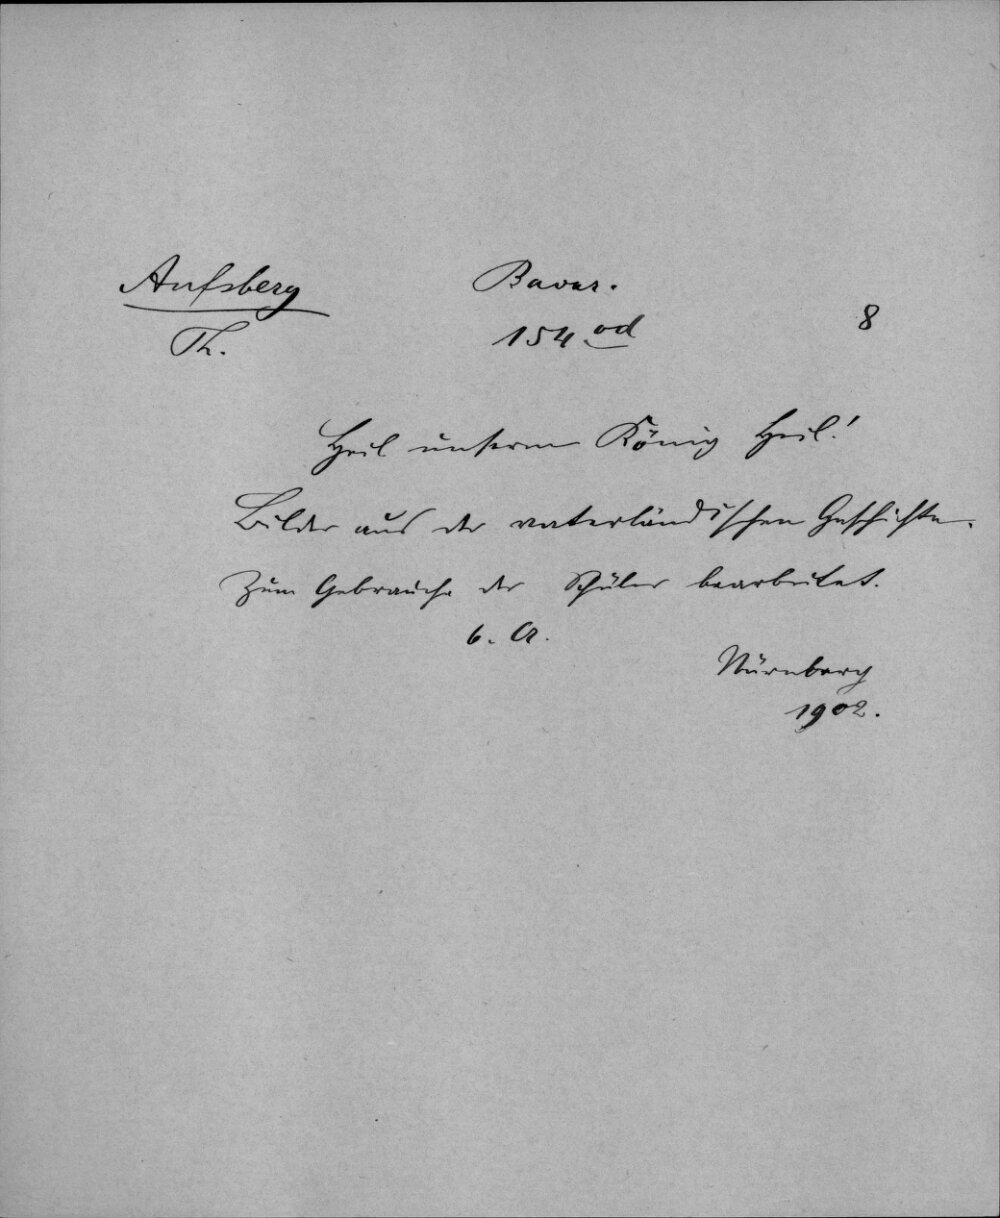 Aufsberg
Th.
Bavar.
154 od
8
Heil unserm König Heil!
Bilder aus der vaterländischen Geschichte.
Zum Gebrauche der Schüler bearbeitet.
6. A.
Nürnberg
1902.